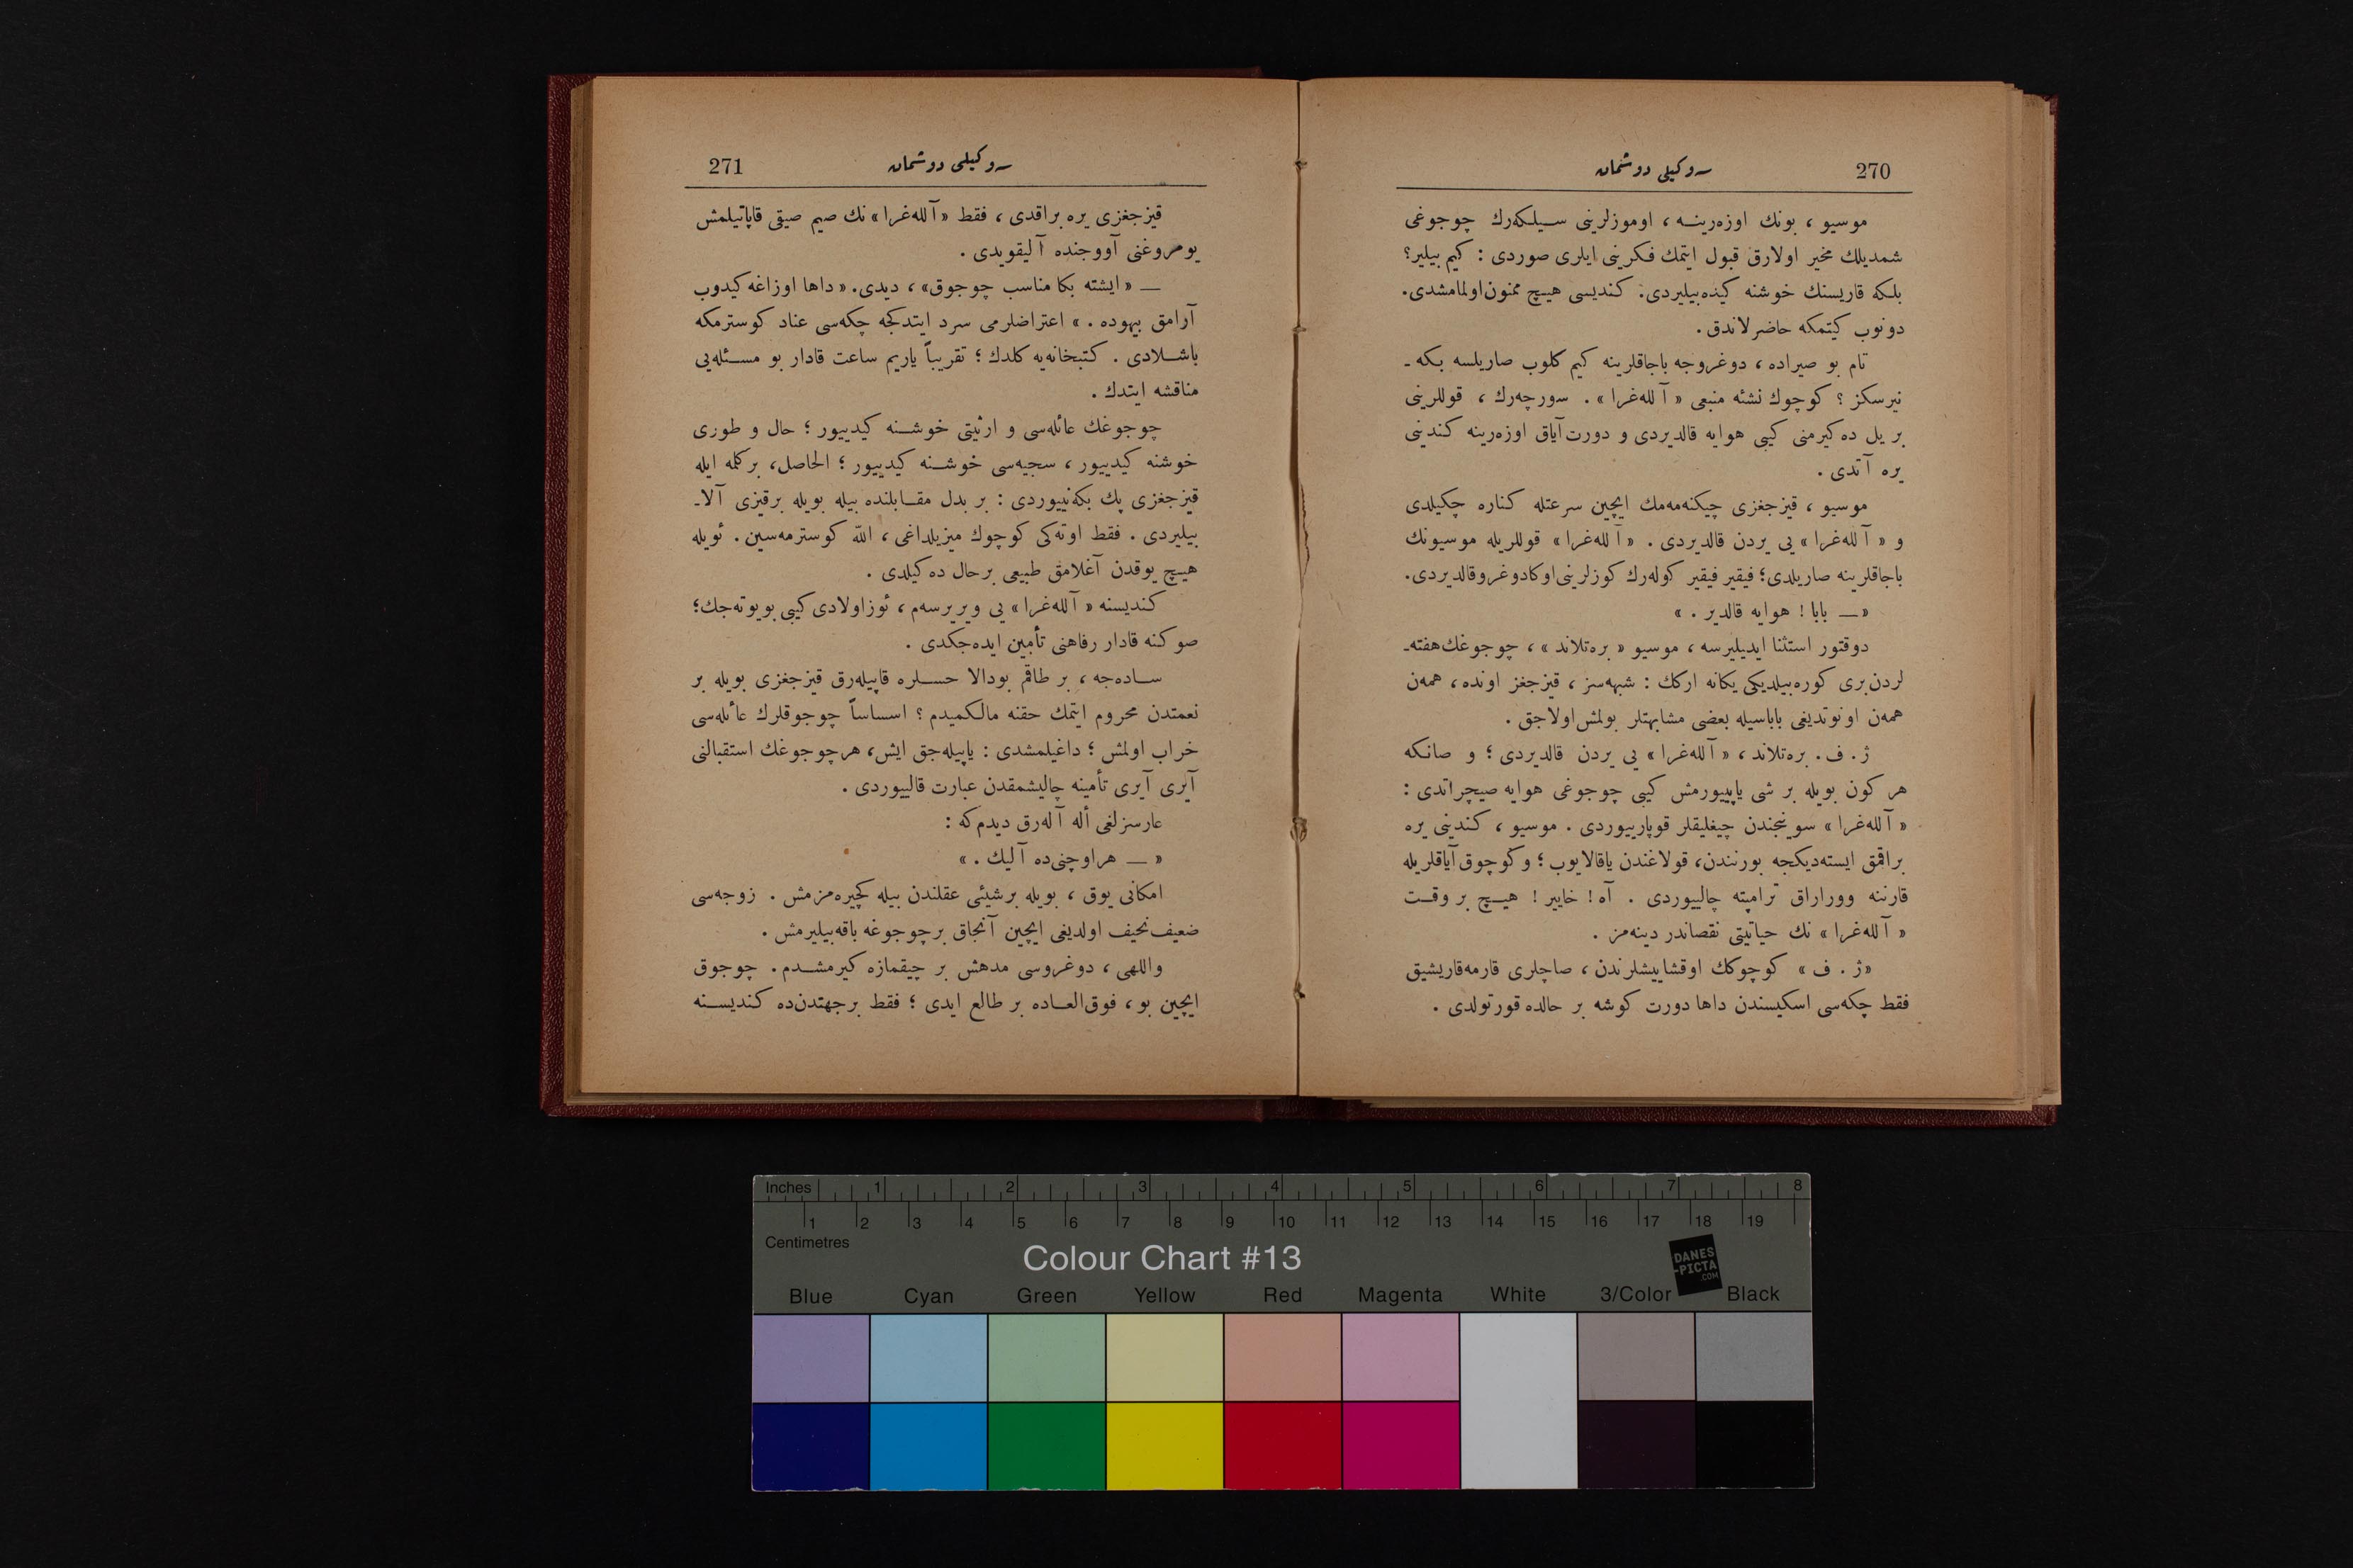 270
سوكيلی دوشمان
موسيو ، بونك اوزه‌رينه ، اوموزلرينی سيلكه‌رك چوجوغی
شمديلك مخير اولارق قبول ايتمك فكرينی ايلری صوردی : كيم بيلير؟
بلكه قاريسنك خوشنه كيده‌بيليردی. كنديسی هيچ ممنون‌اولمامشدی.
دونوب كيتمكه حاضرلاندق .
تام بو صيراده ، دوغروجه باجاقلرينه كيم كلوب صاريلسه بكه ـ
نيرسكز ؟ كوچوك نشئه منبعی « آلله‌غرا » . سورچه‌رك ، قوللرينی
بر يل ده‌كيرمنی كيبی هوايه قالديردی و دورت‌آياق اوزه‌رينه كندينی
يره آتدی .
موسيو ، قيزجغزی چيكنه‌مه‌مك ايچين سرعتله كناره چكيلدی
و « آلله‌غرا » يی يردن قالديردی . « آلله‌غرا » قوللريله موسيونك
باجاقلرينه صاريلدی؛ فيقير فيقير كوله‌رك كوزلرينی‌اوكادوغروقالديردی.
« — بابا ! هوايه قالدير . »
دوقتور استثنا ايديليرسه ، موسيو « بره‌تلاند » ، چوجوغك‌هفته‌ـ
لردن‌بری كوره‌بيلديكی يكانه اركك : شبهه‌سز ، قيزجغز اونده ، همه‌ن
همه‌ن اونوتديغی باباسيله بعضی مشابهتلر بولمش‌اولاجق .
ژ . ف . بره‌تلاند ، « آلله‌غرا » يی يردن قالديردی ؛ و صانكه
هر كون بويله بر شی ياپييورمش كيبی چوجوغی هوايه صيچراتدی :
« آلله‌غرا » سوينجندن چيغليقلر قوپارييوردی . موسيو ، كندينی يره
براقمق ايسته‌ديكجه بورنندن، قولاغندن ياقالايوب ؛ و كوچوق‌آياقلريله
قارننه ووراراق ترامپته چالييوردی . آه ! خايير ! هيچ بر وقت
« آلله‌غرا » نك حياتيتی نقصاندر دينه‌مز .
«ژ . ف » كوچوكك اوقشاييشلرندن ، صاچلری قارمه‌قاريشيق
فقط چكه‌سی اسكيسندن داها دورت كوشه بر حالده قورتولدی .
271
سوكيلی دوشمان
قيزجغزی يره براقدی ، فقط «آلله‌غرا» نك صيم صيقی قاپاتيلمش
يومروغنی آووجنده آليقويدی .
— « ايشته بكا مناسب چوجوق» ، ديدی. « داها اوزاغه كيدوب
آرامق بيهوده . » اعتراضلرمی سرد ايتدكجه چكه‌سی عناد كوسترمكه
باشلادی . كتبخانه‌يه كلدك ؛ تقريباً ياريم ساعت قادار بو مسئله‌يی
مناقشه ايتدك .
چوجوغك عائله‌سی و ارثيتی خوشنه كيدييور ؛ حال و طوری
خوشنه كيدييور ، سجيه‌سی خوشنه كيدييور ؛ الحاصل، بركلمه ايله
قيزجغزی پك بكه‌نييوردی : بر بدل مقابلنده بيله بويله برقيزی آلاـ
بيليردی . فقط اوته‌كی كوچوك ميزيلداغی ، الله كوسترمه‌سين . ئويله
هيچ يوقدن آغلامق طبيعی برحال ده‌كيلدی .
كنديسنه « آلله‌غرا » يی ويريرسه‌م ، ئوزاولادی كيبی بويوته‌جك؛
صوكنه قادار رفاهنی تأمين ايده‌جكدی .
ساده‌جه ، بر طاقم بودالا حسلره قاپيله‌رق قيزجغزی بويله بر
نعمتدن محروم ايتمك حقنه مالكميدم ؟ اسساساً چوجوقلرك عائله‌سی
خراب اولمش ؛ داغيلمشدی : ياپيله‌جق ايش، هرچوجوغك استقبالنی
آيری آيری تأمينه چاليشمقدن عبارت قالييوردی .
عارسزلغی أله آله‌رق ديدم‌كه :
« — هراوچنی‌ده آليك . »
امكانی يوق ، بويله برشيئی عقلندن بيله كچيره‌مزمش . زوجه‌سی
ضعيف‌نحيف اولديغی ايچين آنجاق برچوجوغه باقه‌بيليرمش .
واللهی ، دوغروسی مدهش بر چيقمازه كيرمشدم . چوجوق
ايچين بو ، فوق‌العاده بر طالع ايدی ؛ فقط برجهتدن‌ده كنديسنه
Inches 1 2 3 4 5 6 7 8
1 2 3 4 5 6 7 8 9 10 11 12 13 14 15 16 17 18 19
Centimetres
Colour Chart #13
DANES
-PICTA
.COM
Blue Cyan Green Yellow Red Magenta White 3/Color Black